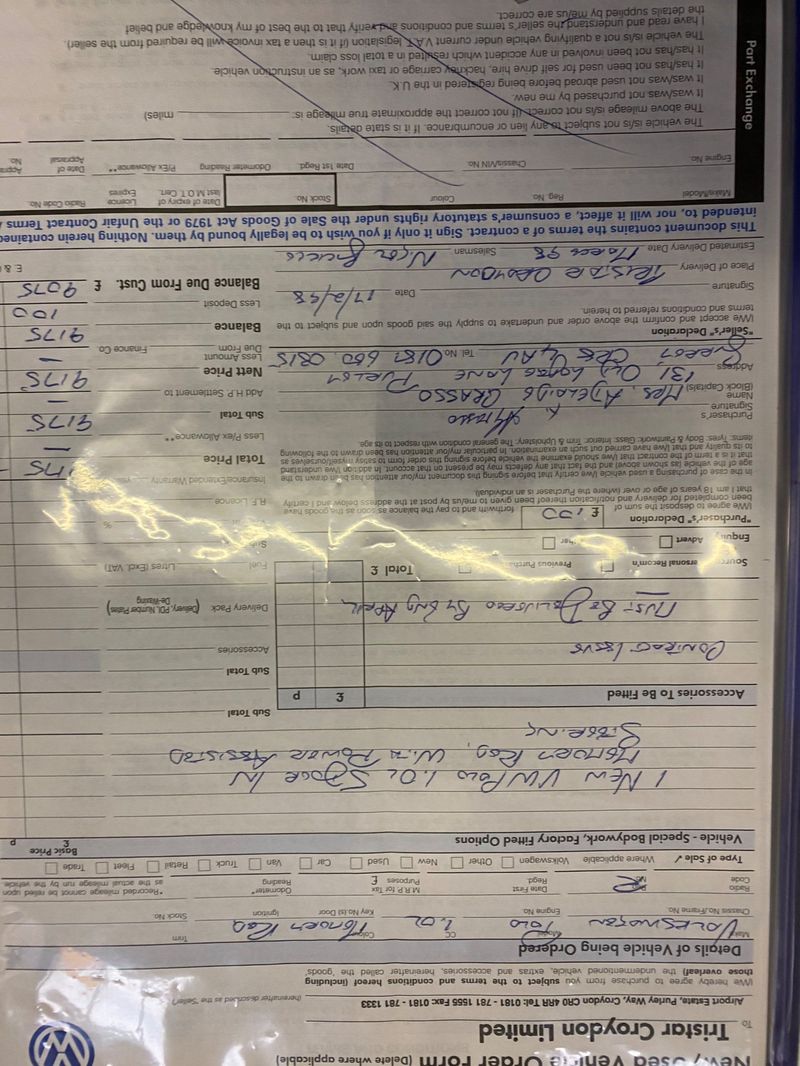 New/Used Vehicle Order Form (Delete where applicable)
To Tristar Croydon Limited
Airport Estate, Purley Way, Croydon CR0 4RR Tel: 0181 - 781 1555 Fax: 0181 - 781 1333 (hereinafter described as the 'Seller')
I/We hereby agree to purchase from you subject to the terms and conditions hereof (including
those overleaf) the undermentioned vehicle, extras and accessories, hereinafter called the 'goods'.
Details of Vehicle being Ordered
Make VOLKSWAGEN Model POLO CC 1.0L Colour FLAMENCO RED Trim
Chassis No./Frame No. Engine No. Key No.(s) Door Ignition Stock No.
Radio Code Date First Regd. M.R.P. for Tax Purposes £ Odometer* Reading *Recorded mileage cannot be relied upon as the actual mileage run by the vehicle.
Type of Sale ✓ Where applicable Volkswagen Other New Used Car Van Truck Retail Fleet Trade
Vehicle - Special Bodywork, Factory Fitted Options Basic Price £ p
1 NEW VW POLO 1.0L 5 DOOR IN
RED, WITH POWER ASSISTED
STEERING
Sub Total
Accessories To Be Fitted £ p
Sub Total
CONTRACT ISSUE
Accessories
MUST BE DELIVERED BY END APRIL
Delivery Pack (Delivery, PDI, Number Plates De-Waxing)
Total £
Fuel Litres (Excl. VAT)
Source Personal Recom'n Previous
Enquiry Advert Other
%
"Purchaser's" Declaration
I/We agree to deposit the sum of £ 100 forthwith and to pay the balance as soon as the goods have
been completed for delivery and notification thereof been given to me/us by post at the address below and I certify
that I am 18 years of age or over (where the Purchaser is an individual).
R.F. Licence
Insurance/Extended Warranty
In the case of purchasing a used vehicle I/we certify that before signing this document my/our attention has been drawn to the
age of the vehicle (as shown above) and the fact that any defects may be present on that account. In addition I/we understand
that it is a term of the contract that I/we should examine the vehicle before signing this order form to satisfy myself/ourselves as
to its quality and that I/we have carried out such an examination. In particular my/our attention has been drawn to the following
items: Tyres: Body & Paintwork: Glass: Interior: Trim & Upholstery. The general condition with respect to its age.
Total Price 9175
Less P/ex Allowance** —
Purchaser's Signature
Sub Total 9175
Name (Block Capitals) MRS. ADELAIDE K. GRASSO
Add H.P. Settlement to —
Address 131, OLD LODGE LANE PURLEY
Nett Price 9175
SURREY CR8 4AU Tel. No. 0181 660 0815
Less Amount Due From Finance Co —
"Seller's" Declaration
I/We accept and confirm the above order and undertake to supply the said goods upon and subject to the
terms and conditions referred to herein.
Balance 9175
Signature Date 17/2/98
Less Deposit 100
Place of Delivery TRISTAR CROYDON
Balance From Due Cust. £ 9075
Estimated Delivery Date MARCH 98 Salesman
E & O
This document contains the terms of a contract. Sign it only if you wish to be legally bound by them. Nothing herein contained
intended to, nor will it affect, a consumer's statutory rights under the Sale of Goods Act 1979 or the Unfair Contract Terms
Part Exchange
Make/Model Reg. No. Colour Stock No. Date of expiry of last M.O.T. Cert. Licence Expires Radio Code No.
Engine No. Chassis/VIN No. Date 1st Regd. Odometer Reading P/Ex Allowance** Date of Appraisal Appraisal No.
The vehicle is/is not subject to any lien or encumbrance. If it is state details.
The above mileage is/is not correct. (If not correct the approximate true mileage is: miles)
It was/was not purchased by me new.
It was/was not used abroad before being registered in the U.K.
It has/has not been used for self drive hire, hackney carriage or taxi work, as an instruction vehicle.
It has/has not been involved in any accident which resulted in a total loss claim.
The vehicle is/is not a qualifying vehicle under current V.A.T. legislation (if it is then a tax invoice will be required from the seller).
I have read and understand the seller's terms and conditions and verify that to the best of my knowledge and belief
the details supplied by me/us are correct.